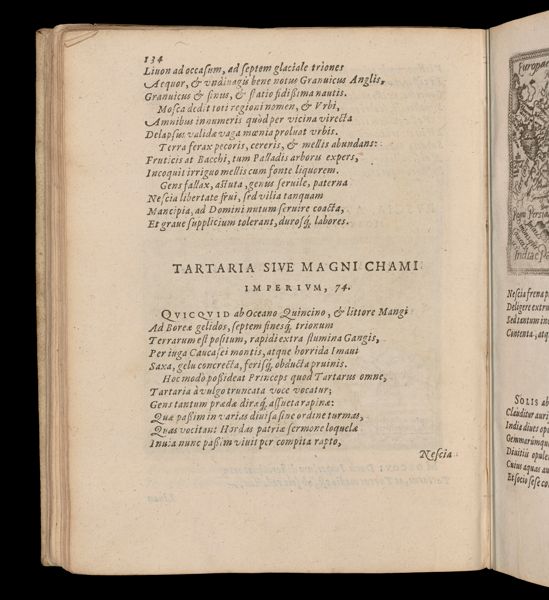 134
Liuon ad occasum, ad septem glaciale triones
Aequor, & vndinagũ bene notus Granuicus Anglis,
Granuicus & sinus, & statio fidissima nautis.
Mosca dedit toti regioni nomen, & Vrbi,
Amnibus innumeris quòd per vicina virecta
Delapsus valida vaga mœnia proluat vrbis.
Terra ferax pecoris, cereris, & mellis abundans:
Fruticis at Bacchi, tum Palladis arboris expers,
Incoquit irriguo mellis cum fonte liquorem.
Gens fallax, astuta, genus seruile, paterna
Nescia libertate frui, sed vilia tanquam
Mancipia, ad Domini nutum seruire coacta,
Et graue supplicium tolerant, durosq́, labores.
TARTARIA SIVE MAGNI CHAMI
IMPERIVM, 74.
QVICQVID ab Oceano Quincino, & littore Mangi
Ad Boreæ gelidos, septem finesq́, trionum
Terrarum est positum, rapidi extra flumina Gangis,
Per iuga Caucasei montis, atque horrida Imaui
Saxa, gelu concrecta, ferisq́, obducta pruinis.
Hoc modò possideat Princeps quod Tartarus omne,
Tartaria à vulgo truncata voce vocatur;
Gens tantum prædæ diræq́, assueta rapinæ:
Quæ passim in varias diuisa sine ordine turmas,
Quas vocitant Hordas patriæ sermone loquelæ
Inuia nunc passim viuit per compita rapto,
Nescia
Europae
Indiae Pa
Nescia frena p
Deligere extru
Sed tantum in
Contenta, atq́
SOLIS ab
Clauditur auri
India diues op
Gemmarúmqu
Diuitiis opule
Cuius aquas au
Et socio sese co